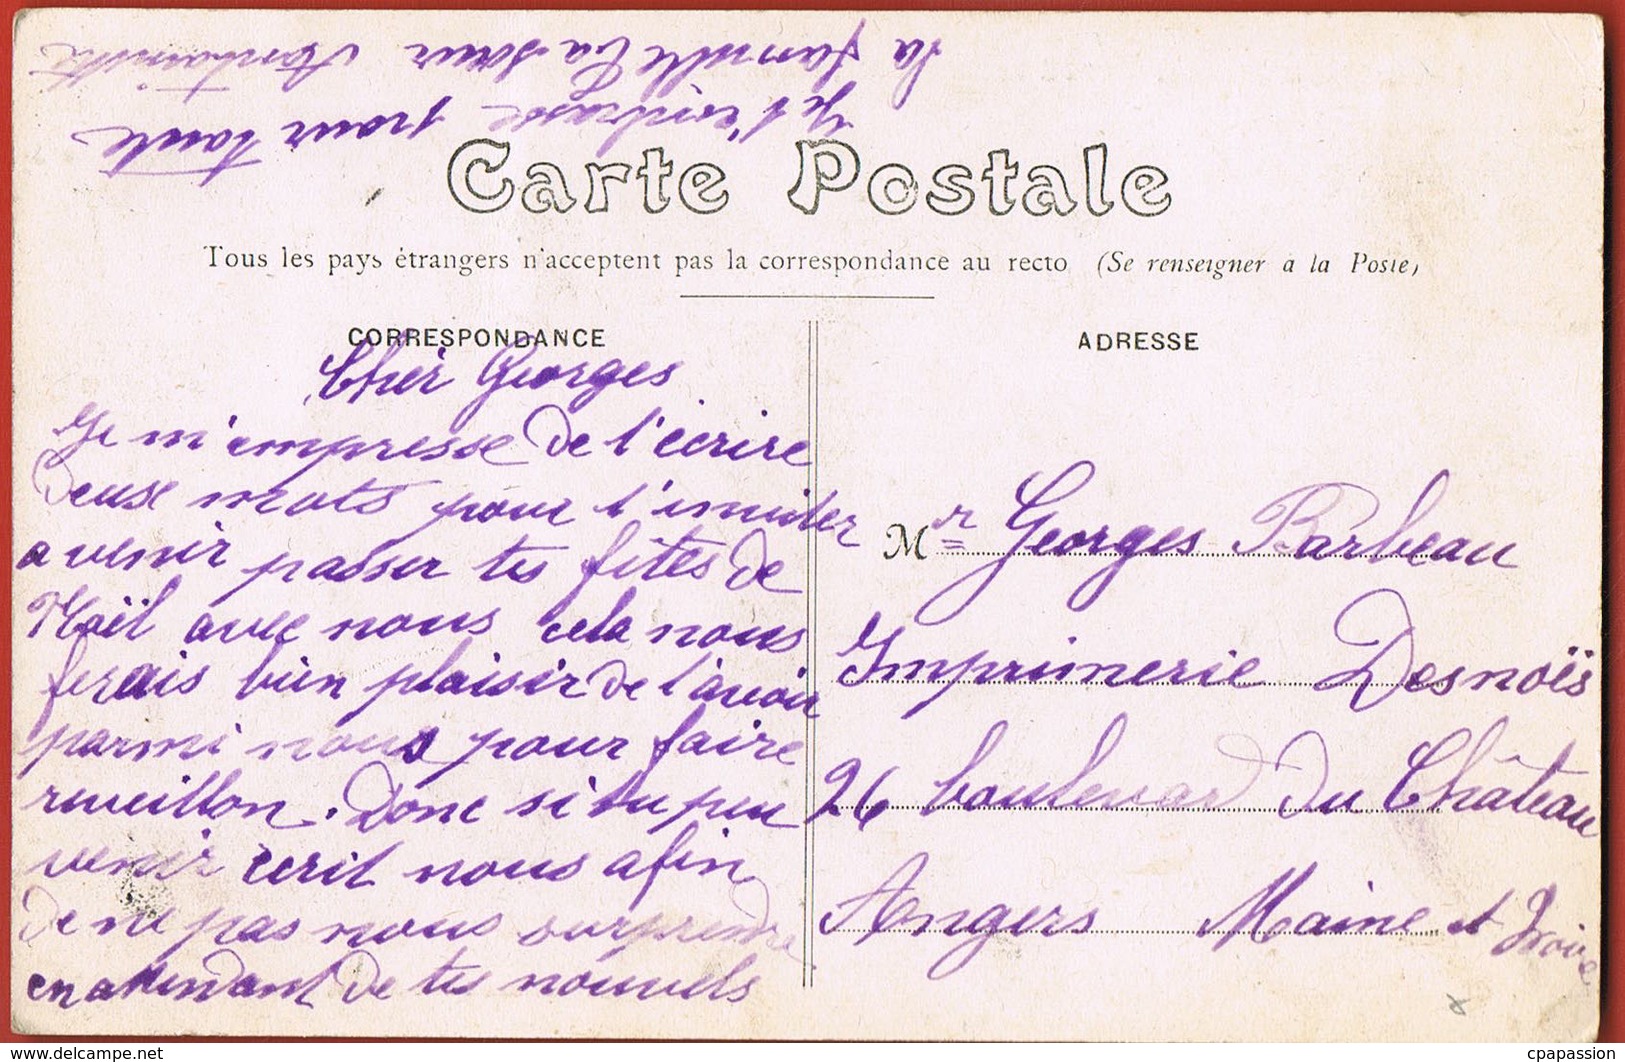 Carte Postale
Tous les pays étrangers n'acceptent pas la correspondance au recto (Se renseigner à la Poste)
CORRESPONDANCE
Cher Georges
Je m'empresse de t'écrire
deuse mots pour t'inviter
a venir passer tes fêtes de
Noël avec nous cela nous
ferais bien plaisir de t'avoir
parmi nous pour faire
reveillon. Donc si tu peu
venir ecrit nous afin
de ne pas nous surprendre
en attendant de tes nouvels
Je t'embrasse pour toute
la famille ta sœur
ADRESSE
Mr Georges Barbeau
Imprimerie Desnoës
26 boulevard du Château
Angers Maine et Loire
www.delcampe.net
cpapassion